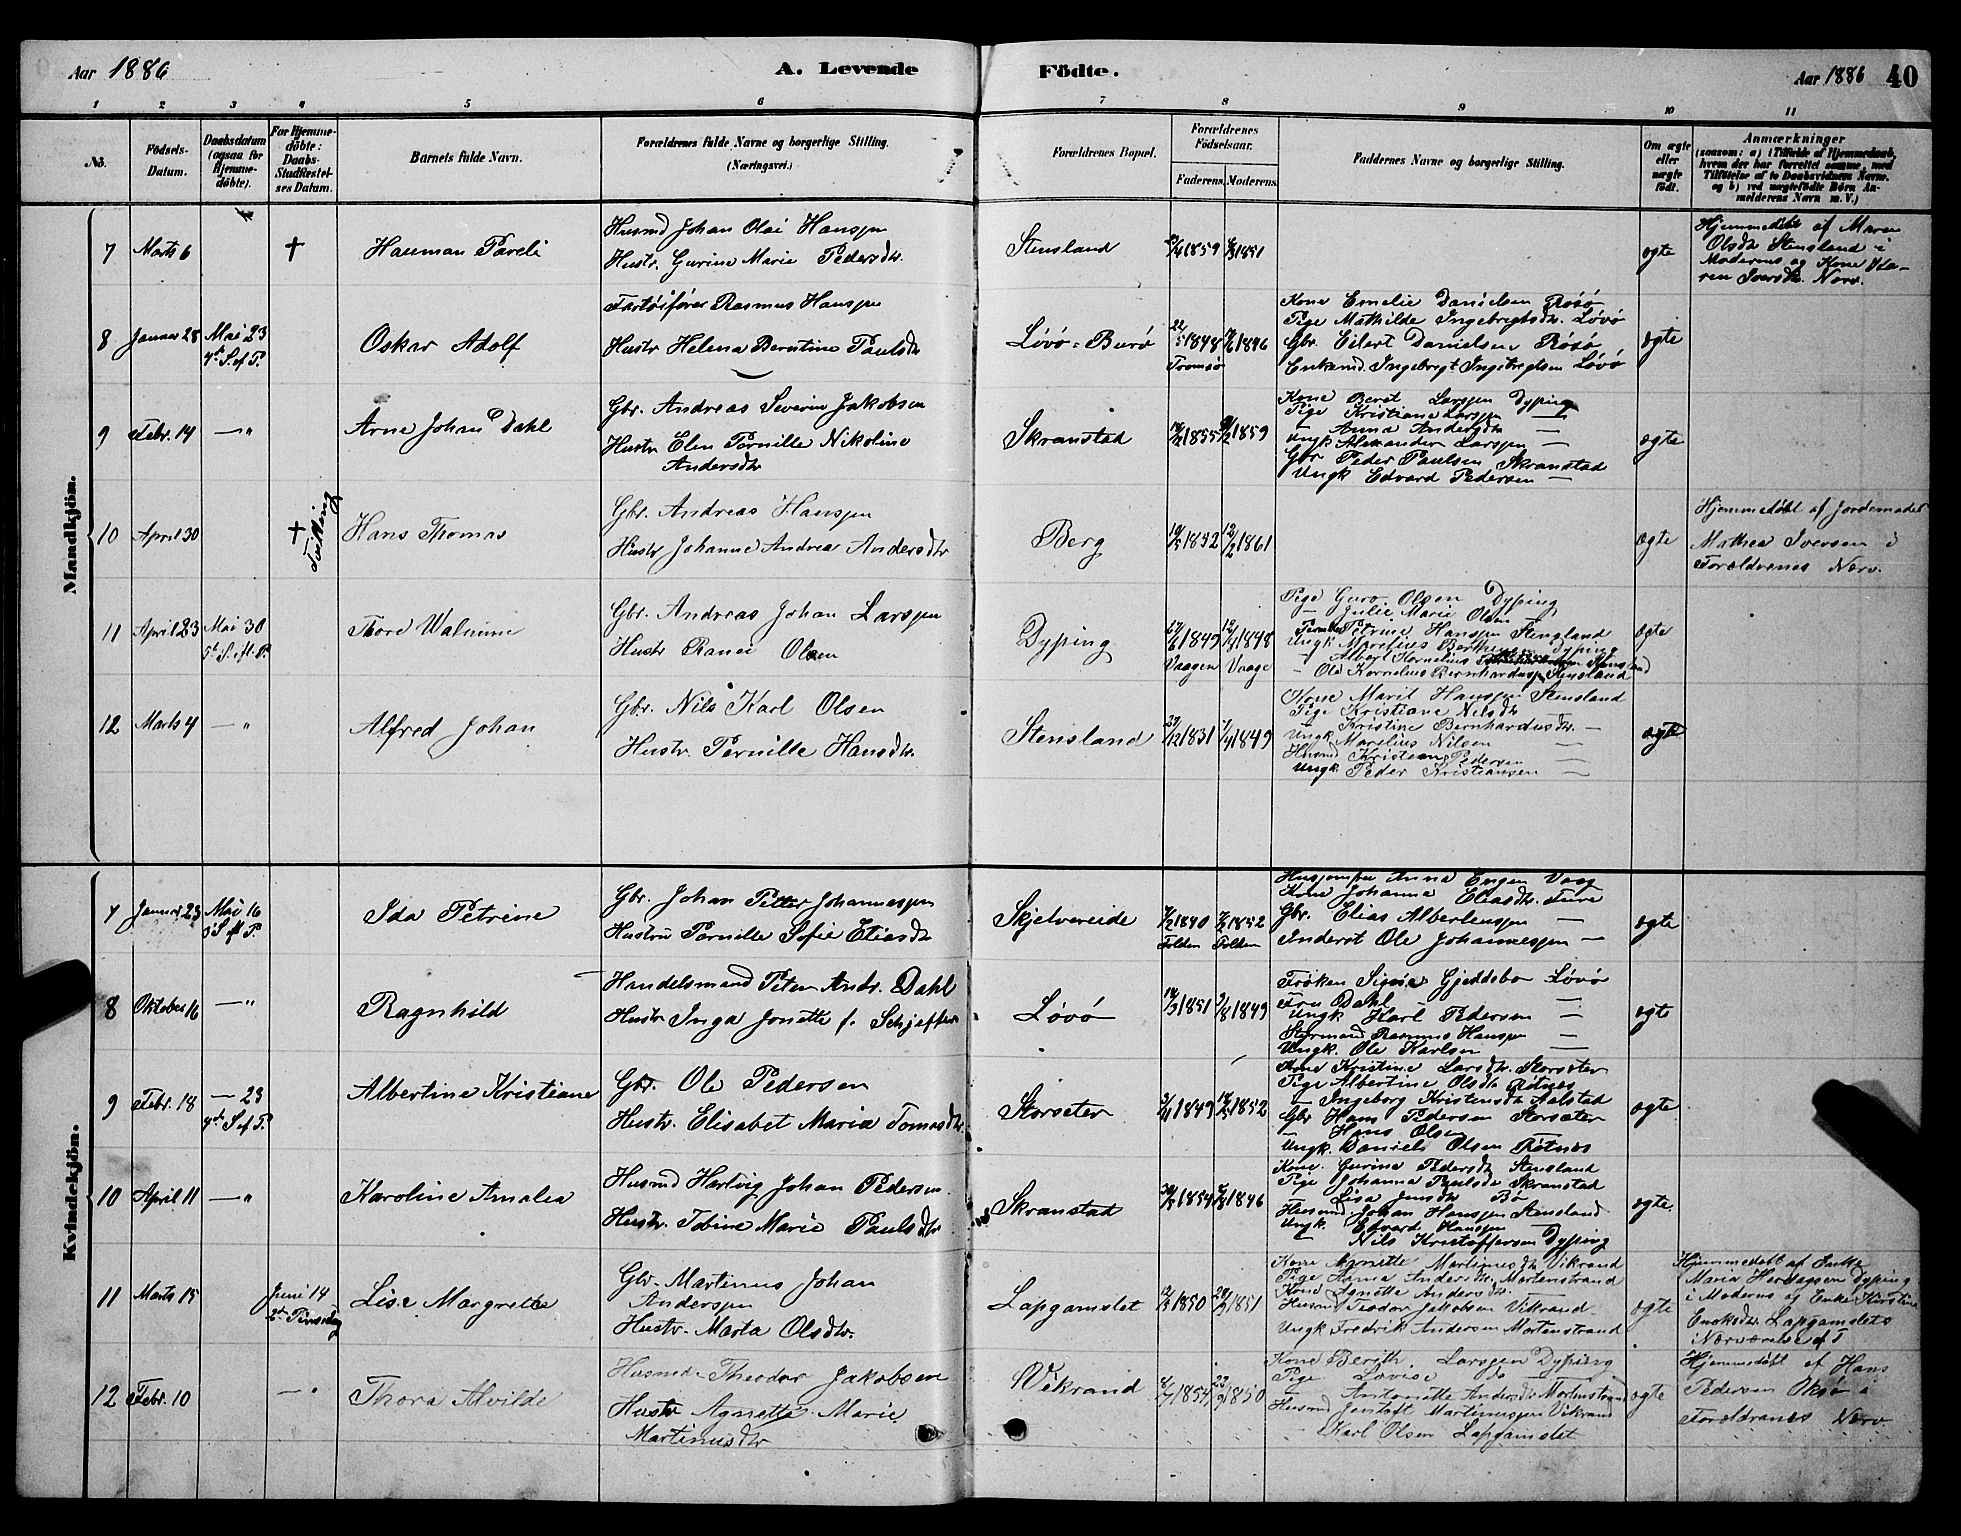 Aar 1886
A. Levende Födte.
Aar 1886 40
1 2 3 4 5 6 7 8 9 10 11
No.
Födsels-Datum.
Daabsdatum (ogsaa for Hjemme-döbte).
For Hjemme-döbte: Daabs-Stadfæstel-ses Datum.
Barnets fulde Navn.
Forældrenes fulde Navne og borgerlige Stilling.
(Næringsvei.)
Forældrenes Bopæl.
Forældrenes Födselsaar.
Faderens. Moderens.
Faddernes Navne og borgerlige Stilling.
Om ægte eller uægte födt.
Anmærkninger
(saasom: a) i Tilfælde af Hjemmedaab,
hvem der har forrettet samme, med
Tilföielse af to Daabsvidners Navne.
og b) ved uægtefödte Börn An-
melderens Navn m. V.)
Mandkjön.
7 Marts 6 † Hauman Pareli
Husmd Johan Olai Hanssen
Hustr. Gurine Marie Pedersdtr.
Stensland
1859 1851
ægte
Hjemmedøbt af Maren
Olsdtr Stensland i
Moderens og Kone
Iversdtr. Nærv.
8 Januar 28 Mai 23
4de S. ef P.
Oskar Adolf
Fartøifører Rasmus Hanssen
Hustr Helena Berntine Paulsdtr
Løvø: Burø
1848 1846
Tromsø
Kone Emelie Danielsen Røsø
Pige Mathilde Ingebregtsdtr. Løvø
Gbr. Eilert Danielsen Røsø
Enkemd. Ingebregt Ingebregtsen Løvø
ægte
9 Febr. 14 — "
Arne Johan Dahl
Gbr. Andreas Severin Jakobsen
Hustr Elen Pernille Nikoline
Andersdtr
Skranstad
1855 1859
Kone Beret Larssen Dyping
Pige Kristiane Larssen —
" Anna Andersdtr —
Ungk Alexander Larssen —
Gbr Peder Paulsen Skranstad
Ungk Edvard Pedersen —
ægte
10 April 30 †
Hans Thomas
Gbr. Andreas Hanssen
Hustr Johanne Andrea Andersdtr
Berg
1852 12/2 1861
ægte
Hjemmedøbt af Jordemoder
Mathea Iversen i
Forældrenes Nærv.
11 April 23 Mai 30
5te S. eft. P.
Thore Walmine
Gbr. Andreas Johan Larssen
Hustr Ranei Olsen
Dyping
1849 1848
Vaagen Vaage
Pige Guro Olsen Dyping
— Julie Marie Olsen
Petrine Hanssen Stensland
Ungk Marelius Dyping
— Albert Kornelius Stensland
— Ole Kornelius Bernhardussen Stensland
ægte
12 Marts 4 — "
Alfred Johan
Gbr. Nils Karl Olsen
Hustr. Pernille Hansdtr.
Stensland
1831 1849
Kone Marit Hanssen Stensland
Pige Kristiane Nilsdtr —
" Kristine Bernhardusdtr. —
Ungk Marelius Nilsen —
Husmd Kristian Pedersen —
Ungk. Peder Kristiansen —
ægte
Kvindekjön.
7 Januar 23 Mai 16
3 S. eft P.
Ida Petrine
Gbr. Johan Pitter Johannessen
Hustru Pernille Sofie Eliasdtr
Skjelvereide
1840 1852
Folden Folden
Husjomfru Anna Engen Vaag
Kone Johanna Eliasdtr. Fure
Gbr. Elias Albertenssen —
Inderst Ole Johannessen —
ægte
8 Oktober 16 — "
Ragnhild
Handelsmand Peter Andr. Dahl
Hustr Inga Jonette f. Schjeffer
Løvø
1851 1849
Frøken Signe Gjeddebo Løvø
Fru Dahl —
Ungk Karl Pedersen —
Styrmand Rasmus Hanssen —
Ungk. Ole Karlsen —
ægte
9 Febr. 18 — 23
4de S. ef P.
Albertine Kristiane
Gbr. Ole Pedersen
Hustr. Elisabet Maria Tomasdtr.
Storseter
1849 1852
Kone Kristine Larsdtr. Storseter
Pige Albertine Olsdtr Røtnes
— Ingeborg Kristensdtr Aalstad
Gbr Hans Pedersen Storsæter
— Hans Olsen
Ungk. Daniels Olsen Røtnes
ægte
10 April 11 — "
Karoline Amalea
Husmd Hartvig Johan Pedersen
Hustr. Tobine Marie Paulsdtr
Skranstad
1854 1846
Kone. Gurine Pedersdtr Stensland
Pige Johanna Paulsdtr Skranstad
" Lisa Jensdtr Bø
Husmd. Johan Hanssen Stensland
Ungk. Edvard Hanssen —
— Nils Kristoffersen Dyping
ægte.
11 Marts 15 Juni 14
2den Pinsedag
Lise Margrethe
Gbr. Martinus Johan
Anderssen
Hustr. Marta Olsdtr.
Lapgamslet
1850 1851
Kone Agnette Martinusdtr Vikrand
Pige Anna Andersdtr. Mortenstrand
Kone Agnette Andersdtr. —
Husmd Teodor Jakobsen Vikrand
Ungk Fredrik Andersen Mortenstrand
ægte
Hjemmedøbt af Enke
Maria Dyping
i Moderens og Enke Kirstina
Enoksdtr. Lapgamslets
i Nærværelse af T
12 Febr. 10 — "
Thora Alvilde
Husmd. Theodor Jakobsen
Hustr Agnetta Marie
Martinusdtr
Vikrand
1854 1850
Kone Berith. Larssen Dyping
Pige Lovise do —
— Antonette Andersdtr Mortenstrand
Husmd Martinussen Vikrand
— Karl Olsen Lapgamslet
ægte
Hjemmedøbt af Hans
Pedersen Oksø i
Forældrenes Nærv.